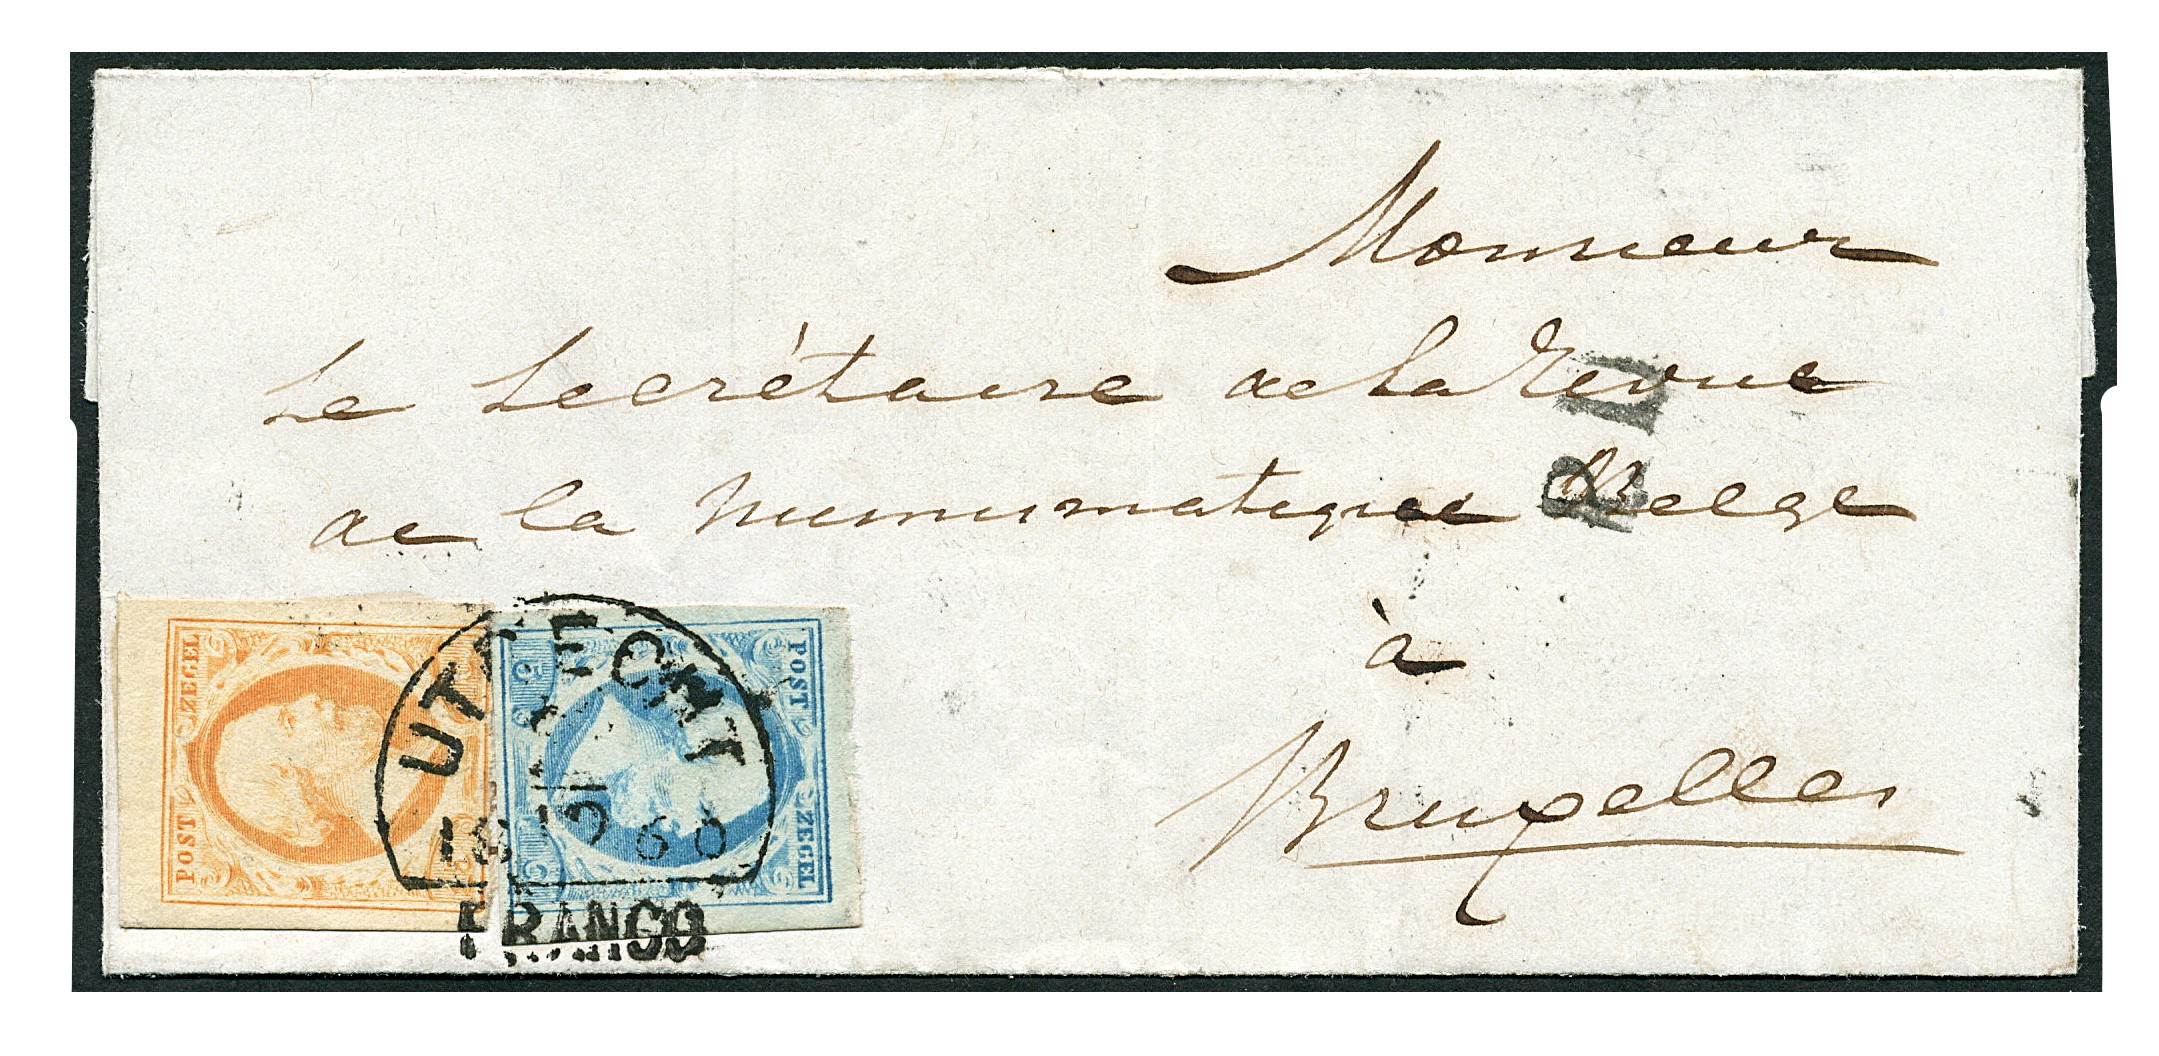 Monsieur
Le Secrétaire de la Revue
de la Numismatique Belge
à
Bruxelles
POST ZEGEL
5 C
POST ZEGEL
UTRECHT
60
FRANCO